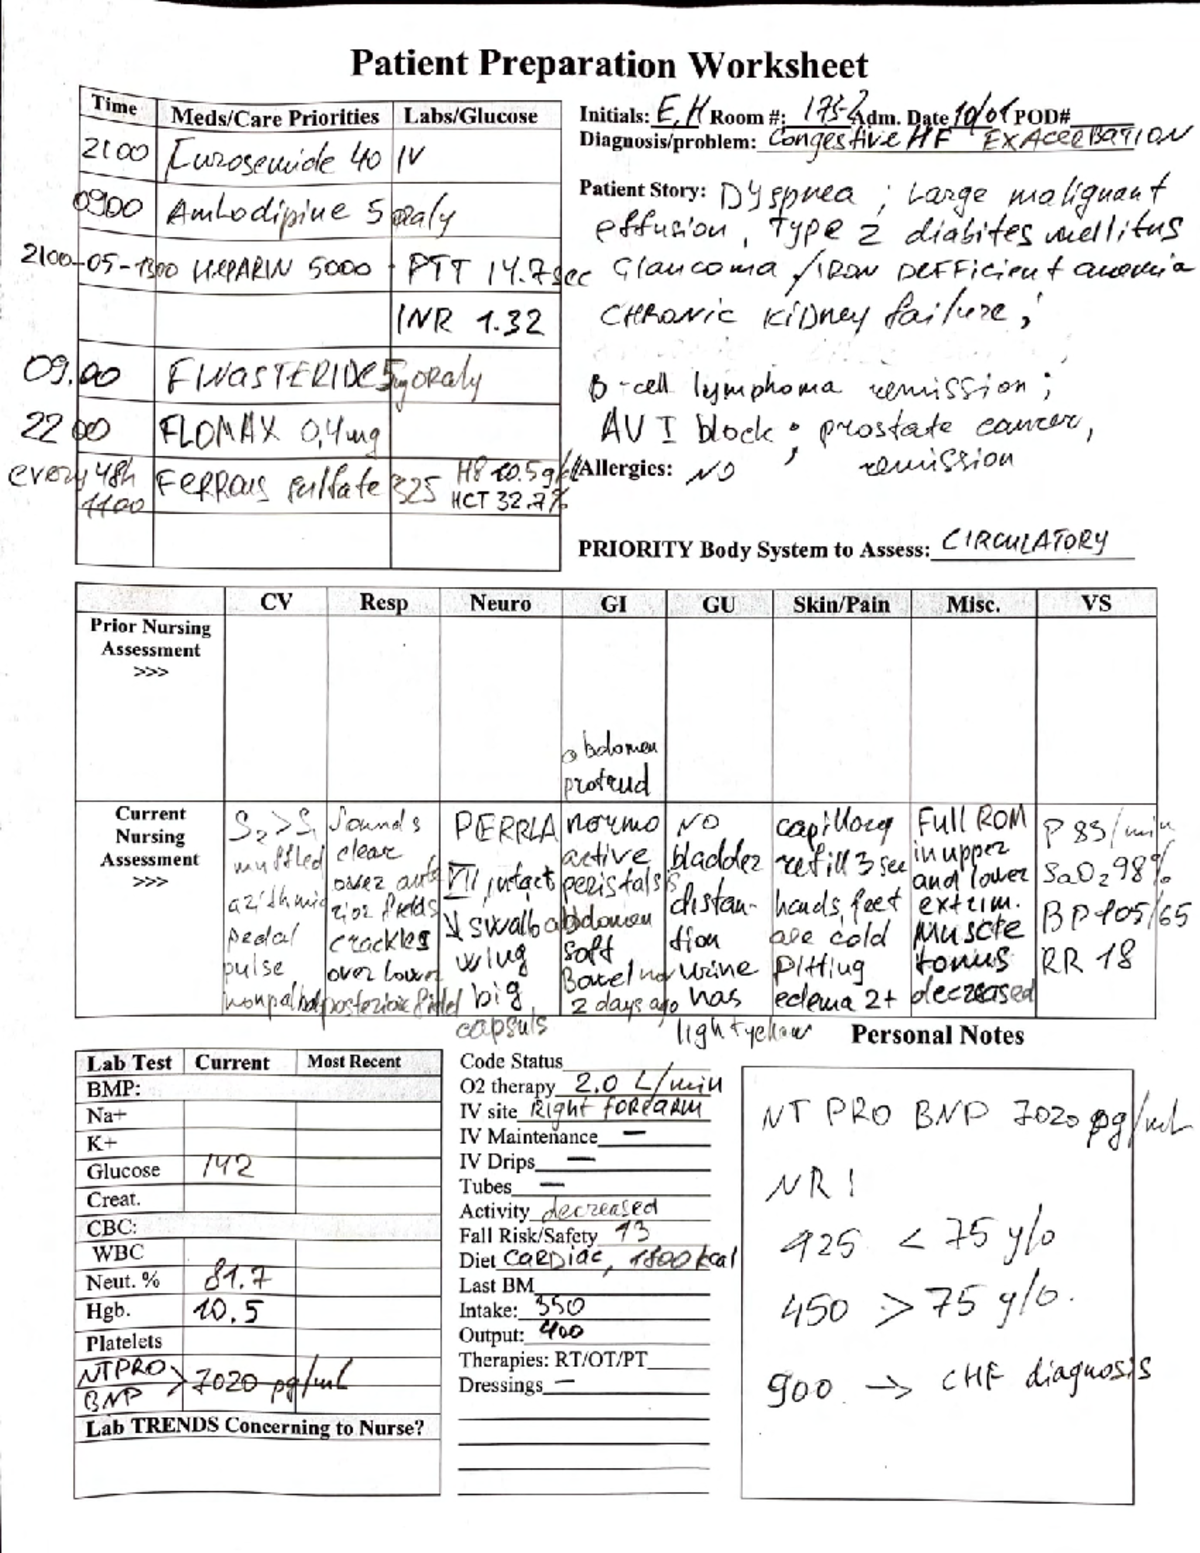 Patient Preparation Worksheet
Time Meds/Care Priorities Labs/Glucose
2100 Furosemide 40 IV
0900 Amlodipine 5 oraly
2100-05-1300 HEPARIN 5000 PTT 14.7sec
INR 1.32
09.00 FINASTERIDE 5mg oraly
22 00 FLOMAX 0,4mg
every 48h 1100 FERROUS sulfate 325 HB 10.5 g/dl
HCT 32.7%
Initials: E,H Room #: 175-2 Adm. Date 10/01 POD#
Diagnosis/problem: Congestive HF EXACERBATION
Patient Story: Dyspnea ; Large malignant
effusion, TYPE 2 diabites mellitus
Glaucoma / IRON DEFFicient anemia
CHRONIC KIDNEY failure ;
B-cell lymphoma remission ;
AV I block ; prostate cancer,
remission
Allergies: NO
PRIORITY Body System to Assess: CIRCULATORY
CV Resp Neuro GI GU Skin/Pain Misc. VS
Prior Nursing
Assessment
>>>
Current
Nursing
Assessment
>>>
S2 > S1
muffled
arithmic
pedal
pulse
nonpalbal
Sounds
clear
over ante
rior fields
crackles
over lower
posterior field
PERRLA
VII, intact
↓ swallo
wing
big
capsuls
abdomen
protrud
normo
active
peristalsis
abdomen
soft
Bowel mov
2 days ago
NO
bladder
distan-
tion
urine
has
light yellow
capillary
refill 3 sec
hands, feet
are cold
Pitting
edema 2+
Full ROM
in upper
and lower
extrim.
Muscle
tonus
decreased
P 83/min
SaO2 98%
BP 105/65
RR 18
Lab Test Current Most Recent
BMP:
Na+
K+
Glucose 142
Creat.
CBC:
WBC
Neut. % 81.7
Hgb. 10.5
Platelets
NTPRO
BNP > 7020 pg/ml
Lab TRENDS Concerning to Nurse?
Code Status
O2 therapy 2.0 L/min
IV site Right FOREARM
IV Maintenance —
IV Drips —
Tubes —
Activity decreased
Fall Risk/Safety 13
Diet CARDIAC, 1800 kcal
Last BM
Intake: 350
Output: 400
Therapies: RT/OT/PT
Dressings —
Personal Notes
NT PRO BNP 7020 pg/ml
NR !
125 < 75 y/o
450 > 75 y/o.
900 → CHF diagnosis